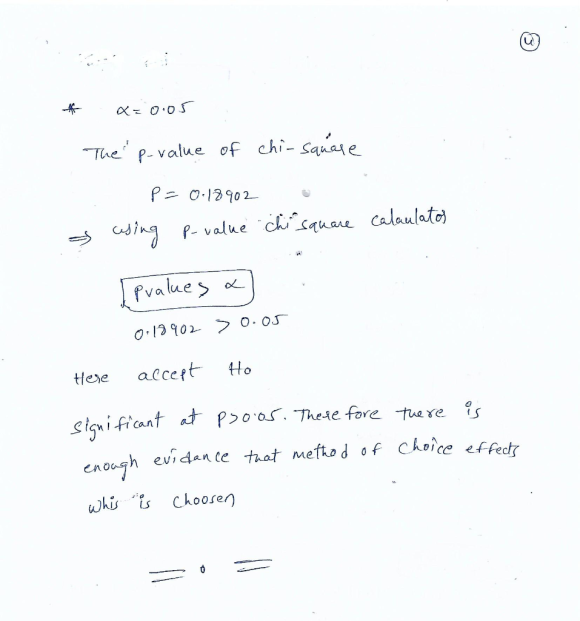 4
* α = 0.05
The p-value of chi-square
P = 0.18902
⇒ using p-value chi square calculator
Pvalue > α
0.18902 > 0.05
Here accept Ho
Significant at P>0.05. Therefore there is
enough evidance that method of choice effects
whis is choosen